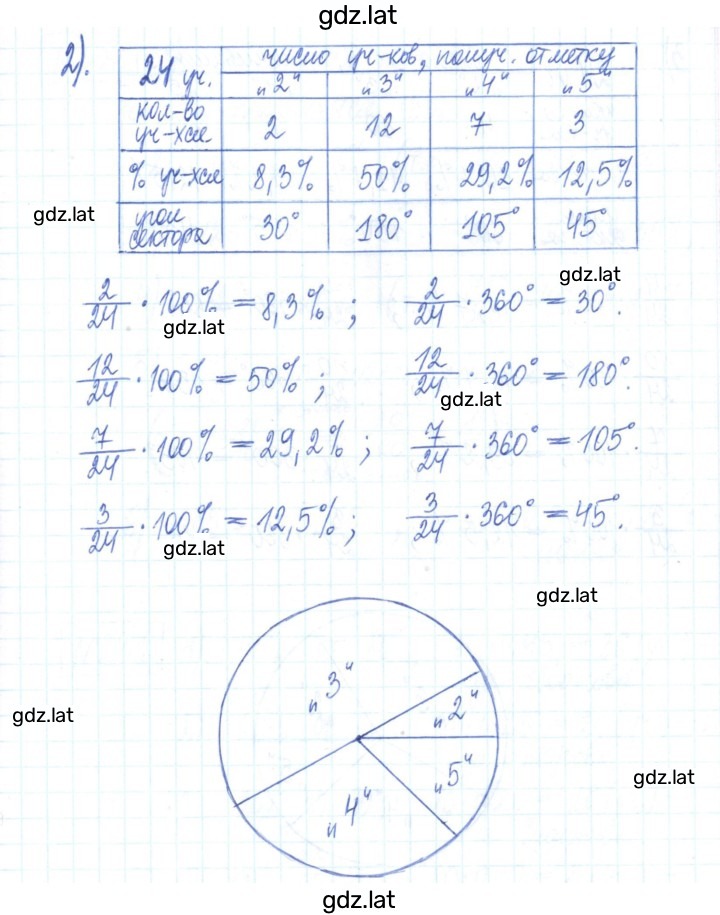 gdz.lat
2).
24 уч. число уч-ков, получ. отметку
„2“ „3“ „4“ „5“
кол-во уч-хся 2 12 7 3
% уч-хся 8,3% 50% 29,2% 12,5%
gdz.lat
угол сектора 30° 180° 105° 45°
gdz.lat
2/24 · 100% = 8,3% ; 2/24 · 360° = 30°.
gdz.lat
12/24 · 100% = 50% ; 12/24 · 360° = 180°.
gdz.lat
7/24 · 100% = 29,2% ; 7/24 · 360° = 105°.
3/24 · 100% = 12,5% ; 3/24 · 360° = 45°.
gdz.lat
gdz.lat
„3“
„2“
gdz.lat
„5“
gdz.lat
„4“
gdz.lat